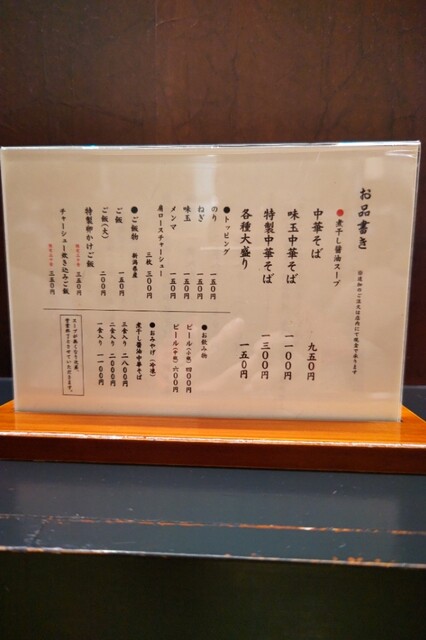 お品書き
※追加のご注文は店内にて現金で承ります
●煮干し醤油スープ
中華そば 九五〇円
味玉中華そば 一一〇〇円
特製中華そば 一三〇〇円
各種大盛り 一五〇円
●トッピング
のり 一五〇円
ねぎ 一五〇円
味玉 一五〇円
メンマ 一五〇円
肩ロースチャーシュー
三枚 三〇〇円
●ご飯物 新潟県産
ご飯 一五〇円
ご飯(大) 二〇〇円
特製卵かけご飯 三五〇円
チャーシュー炊き込みご飯 三五〇円
●お飲み物
ビール(小瓶) 四〇〇円
ビール(中瓶) 六〇〇円
●おみやげ(冷凍)
煮干し醤油中華そば
三食入り 二八〇〇円
二食入り 二〇〇〇円
一食入り 一一〇〇円
スープが無くなり次第
営業終了とさせていただきます。